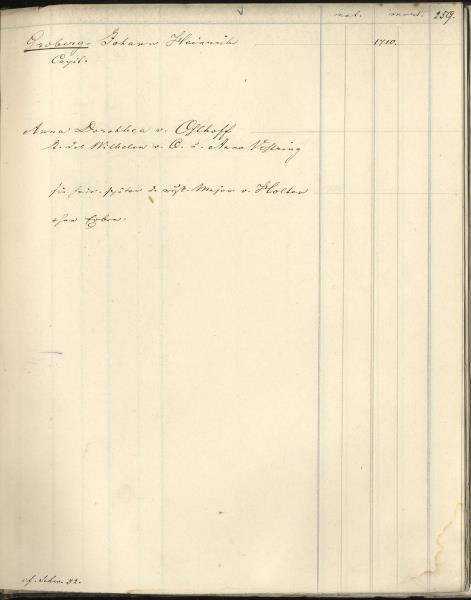 nat. mort. 259.
Groberg. Johann Heinrich 1710.
Capit.
Anna Dorothea v. Osthoff
T. des Wilhelm v. O. u. Anna Vehling
sie heir. später d. russ. Major v. Holten
ohne Erben.
cf. Schw. 82.